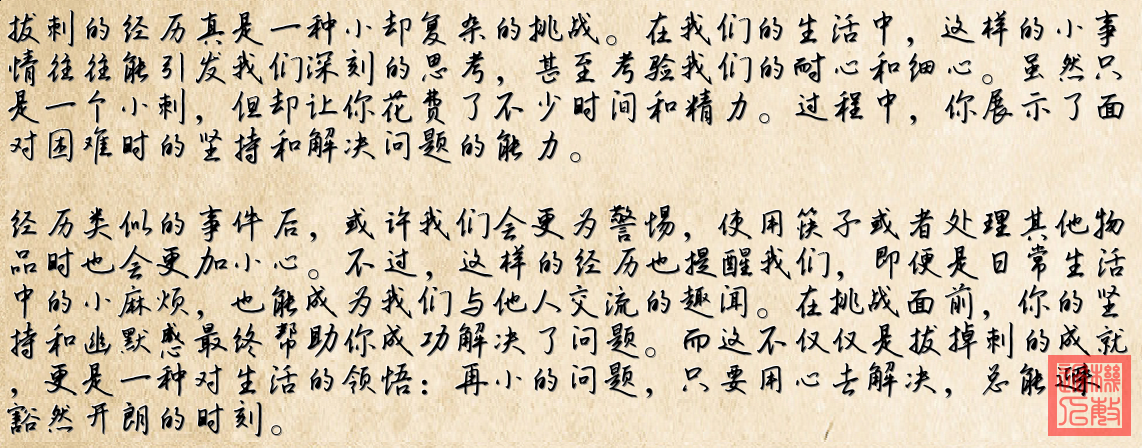 拔刺的经历真是一种小却复杂的挑战。在我们的生活中，这样的小事
情往往能引发我们深刻的思考，甚至考验我们的耐心和细心。虽然只
是一个小刺，但却让你花费了不少时间和精力。过程中，你展示了面
对困难时的坚持和解决问题的能力。
经历类似的事件后，或许我们会更为警惕，使用筷子或者处理其他物
品时也会更加小心。不过，这样的经历也提醒我们，即便是日常生活
中的小麻烦，也能成为我们与他人交流的趣闻。在挑战面前，你的坚
持和幽默感最终帮助你成功解决了问题。而这不仅仅是拔掉刺的成就
，更是一种对生活的领悟：再小的问题，只要用心去解决，总能迎来
豁然开朗的时刻。